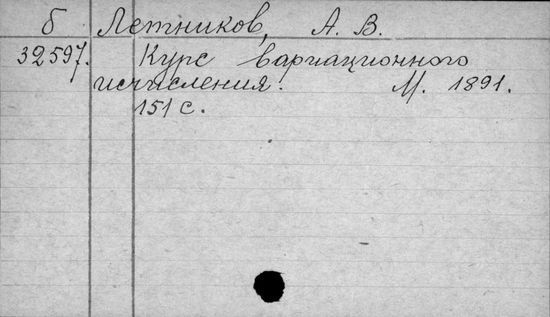 б Летников, А. В.
32597. Курс вариационного
исчисления. М. 1891.
151 с.